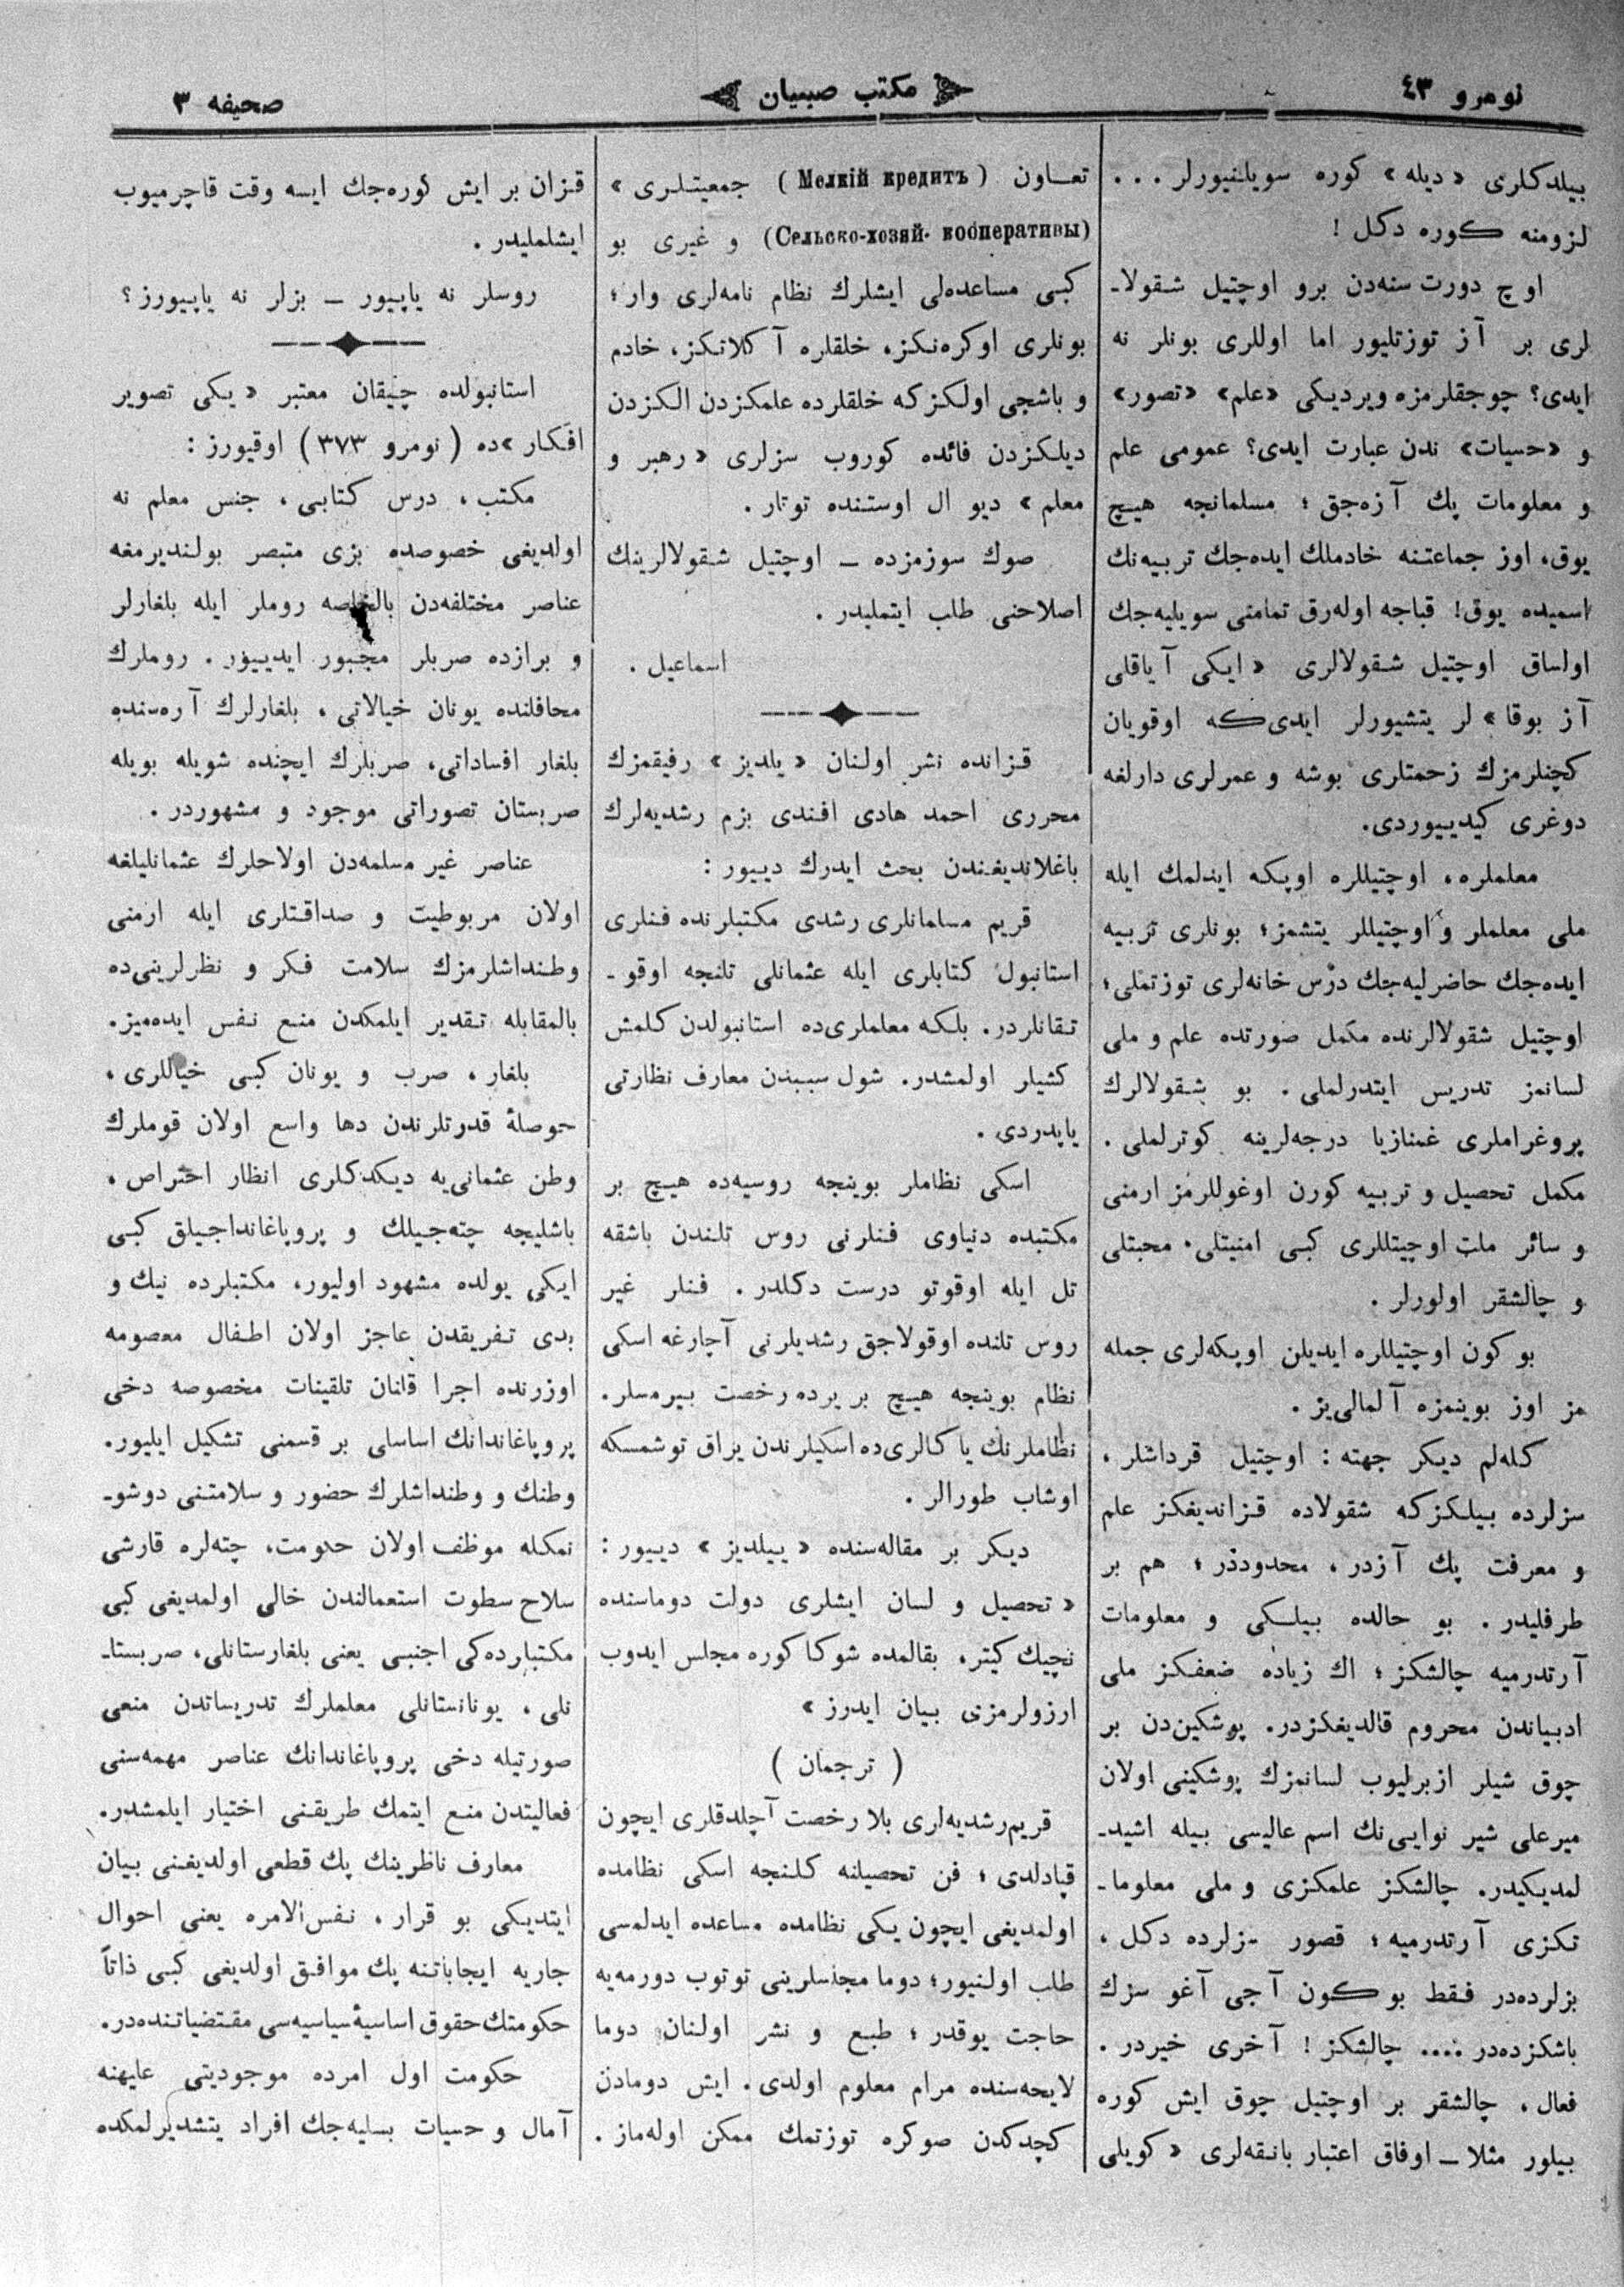 نومرو ٤٣
مكتب صبيان
صحيفه ٣
بيلدكلری «ديله» كوره سويلنيورلر...
لزومنه كوره دكل!
اوچ دورت سنه‌دن برو اوچتيل شقولا-
لری بر آز توزتليور اما اوللری بونلر نه
ايدی؟ چوجقلرمزه ويرديكی «علم» «تصور»
و «حسيات» ندن عبارت ايدی؟ عمومی علم
و معلومات پك آزه‌جق؛ مسلمانجه هيچ
يوق، اوز جماعتنه خادملك ايده‌جك تربيه‌نك
اسميده يوق! قباجه اوله‌رق تمامنی سويليه‌جك
اولساق اوچتيل شقولالری «ايكی آياقلی
آز بوقا» لر يتشيورلر ايدی كه اوقويان
كچنلرمزك زحمتلری بوشه و عمرلری دارلغه
دوغری كيدييوردی.
معلملره، اوچتيللره اوپكه ايندلمك ايله
ملی معلملر و اوچتيللر يتشمز؛ بونلری تربيه
ايده‌جك حاضرليه‌جك درس خانه‌لری توزتملی؛
اوچتيل شقولالرنده مكمل صورتده علم و ملی
لسانمز تدريس ايتدرلملی. بو شقولالرك
پروغراملری غمنازيا درجه‌لرينه كوترلملی.
مكمل تحصيل و تربيه كورن اوغوللرمز ارمنی
و سائر ملت اوچيتللری كبی امنيتلی، محبتلی
و چالشقر اولورلر.
بو كون اوچتيللره ايديلن اوپكه‌لری جمله
مز اوز بوينمزه آلمالی‌يز.
كله‌لم ديكر جهته: اوچتيل قرداشلر،
سزلرده بيلكز كه شقولاده قزانديغكز علم
و معرفت پك آزدر، محدوددر؛ هم بر
طرفليدر. بو حالده بيلكی و معلومات
آرتدرميه چالشكز؛ اك زياده ضعفكز ملی
ادبياندن محروم قالديغكزدر. پوشكين‌دن بر
چوق شيلر ازبرليوب لسانمزك پوشكينی اولان
ميرعلی شير نوايی‌نك اسم عاليسی بيله اشيد-
لمديكيدر. چالشكز علمكزی و ملی معلوما-
تكزی آرتدرميه؛ قصور سزلرده دكل،
بزلرده‌در فقط بو كون آجی آغو سزك
باشكزده‌در .... چالشكز! آخری خيردر.
فعال، چالشقر بر اوچتيل چوق ايش كوره
بيلور مثلا ـ اوفاق اعتبار بانقه‌لری «كويلی
تعاون (Мелкій кредитъ) جمعيتلری»
(Сельско-хозяй. кооперативы) و غيری بو
كبی مساعده‌لی ايشلرك نظام نامه‌لری وار؛
بونلری اوكره‌نكز، خلقلره آكلاتكز، خادم
و باشجی اولكز كه خلقلرده علمكزدن الكزدن
ديلكزدن فائده كوروب سزلری «رهبر و
معلم» ديو ال اوستنده توتار.
صوك سوزمزده ـ اوچتيل شقولالرينك
اصلاحنی طلب ايتمليدر.
اسماعيل.
قزانده نشر اولنان «يلديز» رفيقمزك
محرری احمد هادی افندی بزم رشديه‌لرك
باغلانديغندن بحث ايدرك دييور:
قريم مسلمانلری رشدی مكتبلرنده فنلری
استانبول كتابلری ايله عثمانلی تلنجه اوقو-
تقانلردر. بلكه معلملری‌ده استانبولدن كلمش
كشيلر اولمشدر. شول سببدن معارف نظارتی
ياپدردی.
اسكی نظاملر بوينجه روسيه‌ده هيچ بر
مكتبده دنياوی فنلرنی روس تلندن باشقه
تل ايله اوقوتو درست دكلدر. فنلر غير
روس تلنده اوقولاجق رشديلرنی آچارغه اسكی
نظام بوينجه هيچ بر يرده رخصت بيرمسلر.
نظاملرنك ياكالری‌ده اسكيلرندن يراق توشمسكه
اوشاب طورالر.
ديكر بر مقاله‌سنده «ييلديز» دييور:
«تحصيل و لسان ايشلری دولت دوماسنده
نچيك كيتر، بقالمده شوكا كوره مجلس ايدوب
ارزولرمزی بيان ايدرز»
(ترجمان)
قريم رشديه‌لری بلا رخصت آچلدقلری ايچون
قپادلدی؛ فن تحصيلنه كلنجه اسكی نظامده
اولمديغی ايچون يكی نظامده مساعده ايدلمسی
طلب اولنيور؛ دوما مجلسلرينی توتوب دورمه‌يه
حاجت يوقدر؛ طبع و نشر اولنان دوما
لايحه‌سنده مرام معلوم اولدی. ايش دومادن
كچدكدن صوكره توزتمك ممكن اوله‌ماز.
قزان بر ايش كوره‌جك ايسه وقت قاچرميوب
ايشلمليدر.
روسلر نه ياپيور ـ بزلر نه ياپيورز؟
استانبولده چيقان معتبر «يكی تصوير
افكار»ده (نومرو ٣٧٣) اوقيورز:
مكتب، درس كتابی، جنس معلم نه
اولديغی خصوصده بزی متبصر بولنديرمغه
عناصر مختلفه‌دن بالخاصه روملر ايله بلغارلر
و برازده صربلر مجبور ايدييور. روملرك
محافلنده يونان خيالاتی، بلغارلرك آره‌سنده
بلغار افساداتی، صربلرك ايچنده شويله بويله
صربستان تصوراتی موجود و مشهوردر.
عناصر غير مسلمه‌دن اولاحلرك عثمانليلغه
اولان مربوطيت و صداقتلری ايله ارمنی
وطنداشلرمزك سلامت فكر و نظرلرينی‌ده
بالمقابله تقدير ايلمكدن منع نفس ايده‌ميز.
بلغار، صرب و يونان كبی خياللری،
حوصلۀ قدرتلرندن دها واسع اولان قوملرك
وطن عثمانی‌يه ديكدكلری انظار احتراص،
باشليجه چته‌جيلك و پروپاغانداجيلق كبی
ايكی يولده مشهود اوليور، مكتبلرده نيك و
بدی تفريقدن عاجز اولان اطفال معصومه
اوزرنده اجرا قلنان تلقينات مخصوصه دخی
پروپاغاندانك اساسلی بر قسمنی تشكيل ايليور.
وطنك و وطنداشلرك حضور و سلامتنی دوشو-
نمكله موظف اولان حكومت، چته‌لره قارشی
سلاح سطوت استعمالندن خالی اولمديغی كبی
مكتبلرده‌كی اجنبی يعنی بلغارستانلی، صربستا-
نلی، يونانستانلی معلملرك تدريساتدن منعی
صورتيله دخی پروپاغاندانك عناصر مهمه‌سنی
فعاليتدن منع ايتمك طريقنی اختيار ايلمشدر.
معارف ناظرينك پك قطعی اولديغنی بيان
ايتديكی بو قرار، نفس‌الامره يعنی احوال
جاريه ايجاباتنه پك موافق اولديغی كبی ذاتاً
حكومتك حقوق اساسيۀ سياسيه‌سی مقتضياتنده‌در.
حكومت اول امرده موجوديتی عليهنه
آمال و حسيات بسليه‌جك افراد يتشديرلمكده